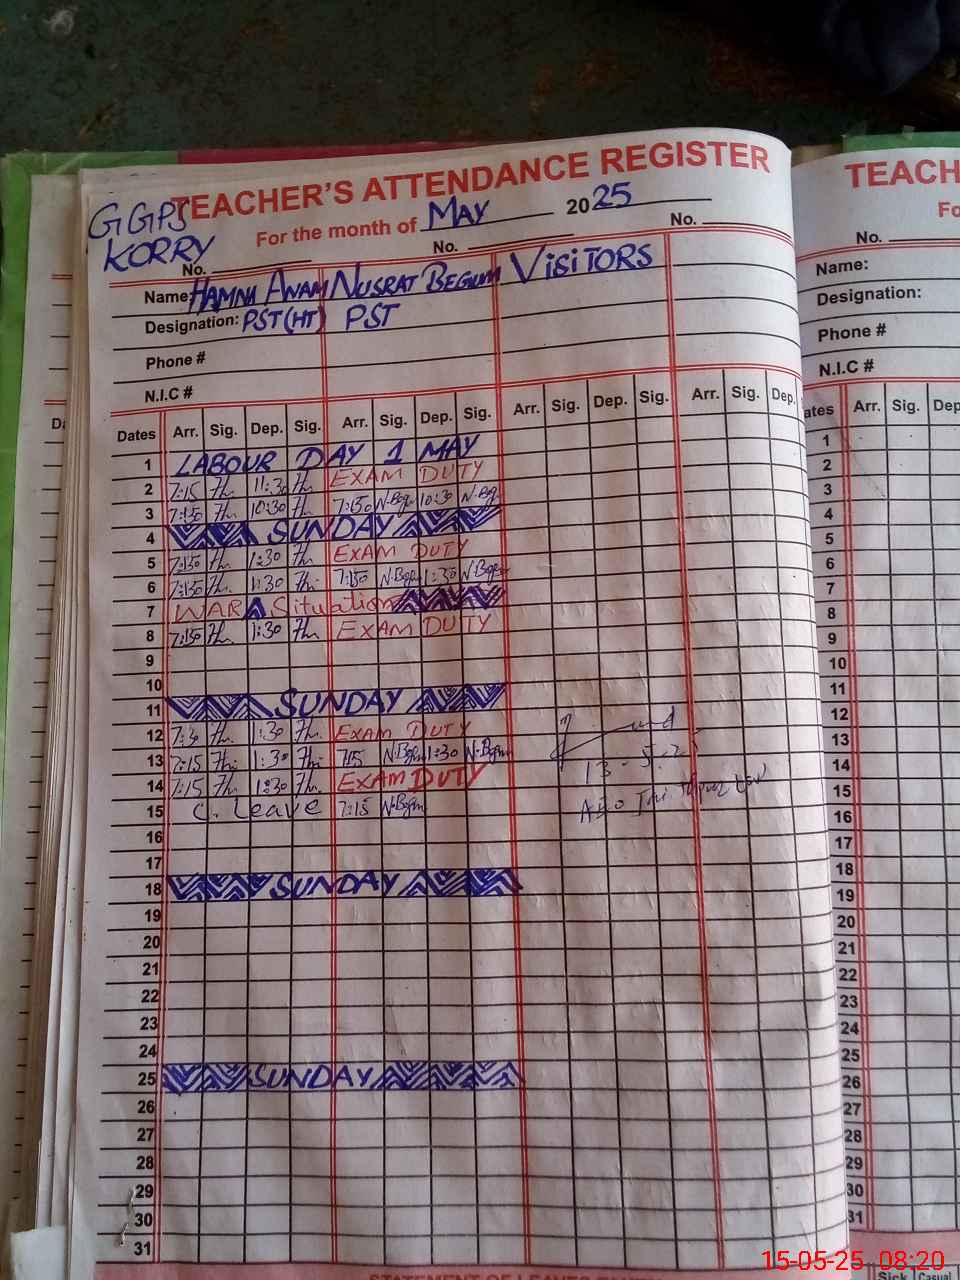 TEACHER'S ATTENDANCE REGISTER
GGPS
KORRY
For the month of MAY 2025
No. No. No.
Name: HAMNA ANAM NUSRAT BEGUM VISITORS
Designation: PST(HT) PST
Phone #
N.I.C #
Dates Arr. Sig. Dep. Sig. Arr. Sig. Dep. Sig. Arr. Sig. Dep. Sig. Arr. Sig. Dep.
1 LABOUR DAY 1 MAY
2 7:15 11:30 EXAM DUTY
3 7:30 10:30 7:50 N.Begum 10:30 N.Beg
4 SUNDAY
5 7:30 1:30 EXAM DUTY
6 7:30 1:30 7:50 N.Begum 1:30 N.Begum
7 WAR Situation
8 7:30 1:30 EXAM DUTY
9
10
11 SUNDAY
12 7:30 1:30 EXAM DUTY
13 7:15 1:30 7:15 N.Begum 1:30 N.Begum
13-5-25
14 7:15 1:30 EXAM DUTY
15 C. Leave 7:15 N.Begum
16
17
18 SUNDAY
19
20
21
22
23
24
25 SUNDAY
26
27
28
29
30
31
TEACH
Fo
No.
Name:
Designation:
Phone #
N.I.C #
ates Arr. Sig. Dep
1
2
3
4
5
6
7
8
9
10
11
12
13
14
15
16
17
18
19
20
21
22
23
24
25
26
27
28
29
30
31
Sick Casual
15-05-25 08:20